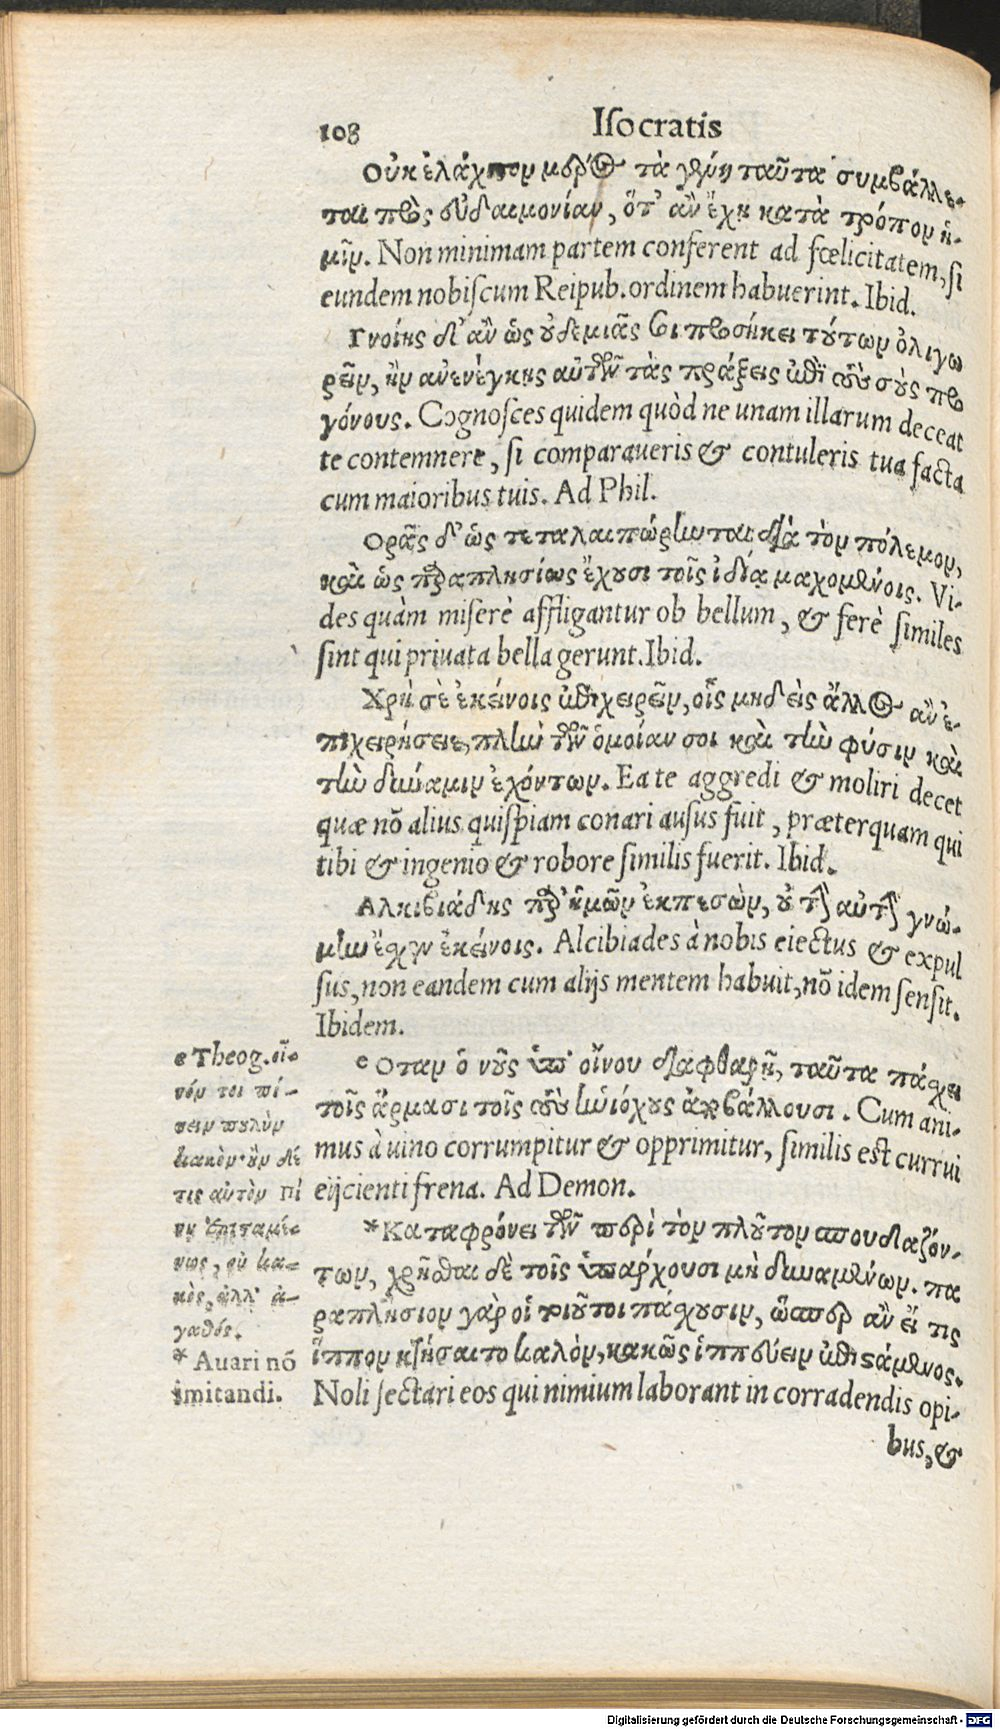 108 Iſocratis
Οὐκ ἐλάχιστον μέρος τὰ γένη ταῦτα συμβάλλε-
ται πρὸς εὐδαιμονίαν, ὅτ' ἂν ἔχῃ κατὰ τρόπον ἡ-
μῖν. Non minimam partem conferent ad fœlicitatem, ſi
eundem nobiſcum Reipub. ordinem habuerint. Ibid.
Γνοίης δ' ἂν ὡς οὐδεμιᾶς σοι προσήκει τούτων ὀλιγω
ρεῖν, ἢν ἀνενέγκῃς αὐτῶν τὰς πράξεις ἐπὶ τοὺς σοὺς προ
γόνους. Cognoſces quidem quòd ne unam illarum deceat
te contemnere, ſi comparaueris & contuleris tua facta
cum maioribus tuis. Ad Phil.
Ορᾷς δ' ὡς τεταλαιπώρηνται διὰ τὸν πόλεμον,
καὶ ὡς παραπλησίως ἔχουσι τοῖς ἰδίᾳ μαχομένοις. Vi-
des quàm miſerè affligantur ob bellum, & ferè ſimiles
ſint qui priuata bella gerunt. Ibid.
Χρή σὲ ἐκείνοις ἐπιχειρεῖν, οἷς μηδεὶς ἄλλος ἂν ἐ-
πιχειρήσειε, πλὴν τῶν ὁμοίαν σοι καὶ τὴν φύσιν καὶ
τὴν δύναμιν ἐχόντων. Ea te aggredi & moliri decet
quæ nō alius quiſpiam conari auſus fuit, præterquam qui
tibi & ingenio & robore ſimilis fuerit. Ibid.
Αλκιβιάδης παρ' ἡμῶν ἐκπεσὼν, οὐ τὴν αὐτὴν γνώ-
μην ἔσχεν ἐκείνοις. Alcibiades à nobis eiectus & expul
ſus, non eandem cum alijs mentem habuit, nō idem ſenſit.
Ibidem.
e Οταν ὁ νοῦς ὑπ' οἴνου διαφθαρῇ, ταῦτα πάσχει
τοῖς ἅρμασι τοῖς τοὺς ἡνιόχους ἀποβάλλουσι. Cum ani-
mus à uino corrumpitur & opprimitur, ſimilis est currui
eijcienti frena. Ad Demon.
* Καταφρόνει τῶν περὶ τὸν πλοῦτον σπουδαζόν-
των, χρῆσθαι δὲ τοῖς ὑπάρχουσι μὴ δυναμένων. πα
ραπλήσιον γὰρ οἱ τοιοῦτοι πάσχουσιν, ὥσπερ ἂν εἴ τις
ἵππον κτήσαιτο καλὸν, κακῶς ἱππεύειν ἐπιστάμενος.
Noli ſectari eos qui nimium laborant in corradendis opi-
bus, &
e Theog. οἶ-
νόν τοι πί-
νειν πουλὺν
κακὸν· ἢν δέ
τις αὐτὸν πί
νῃ ἐπισταμέ-
νως, οὐ κα-
κὸς, ἀλλ' ἀ-
γαθός.
* Auari nō
imitandi.
Digitalisierung gefördert durch die Deutsche Forschungsgemeinschaft - DFG